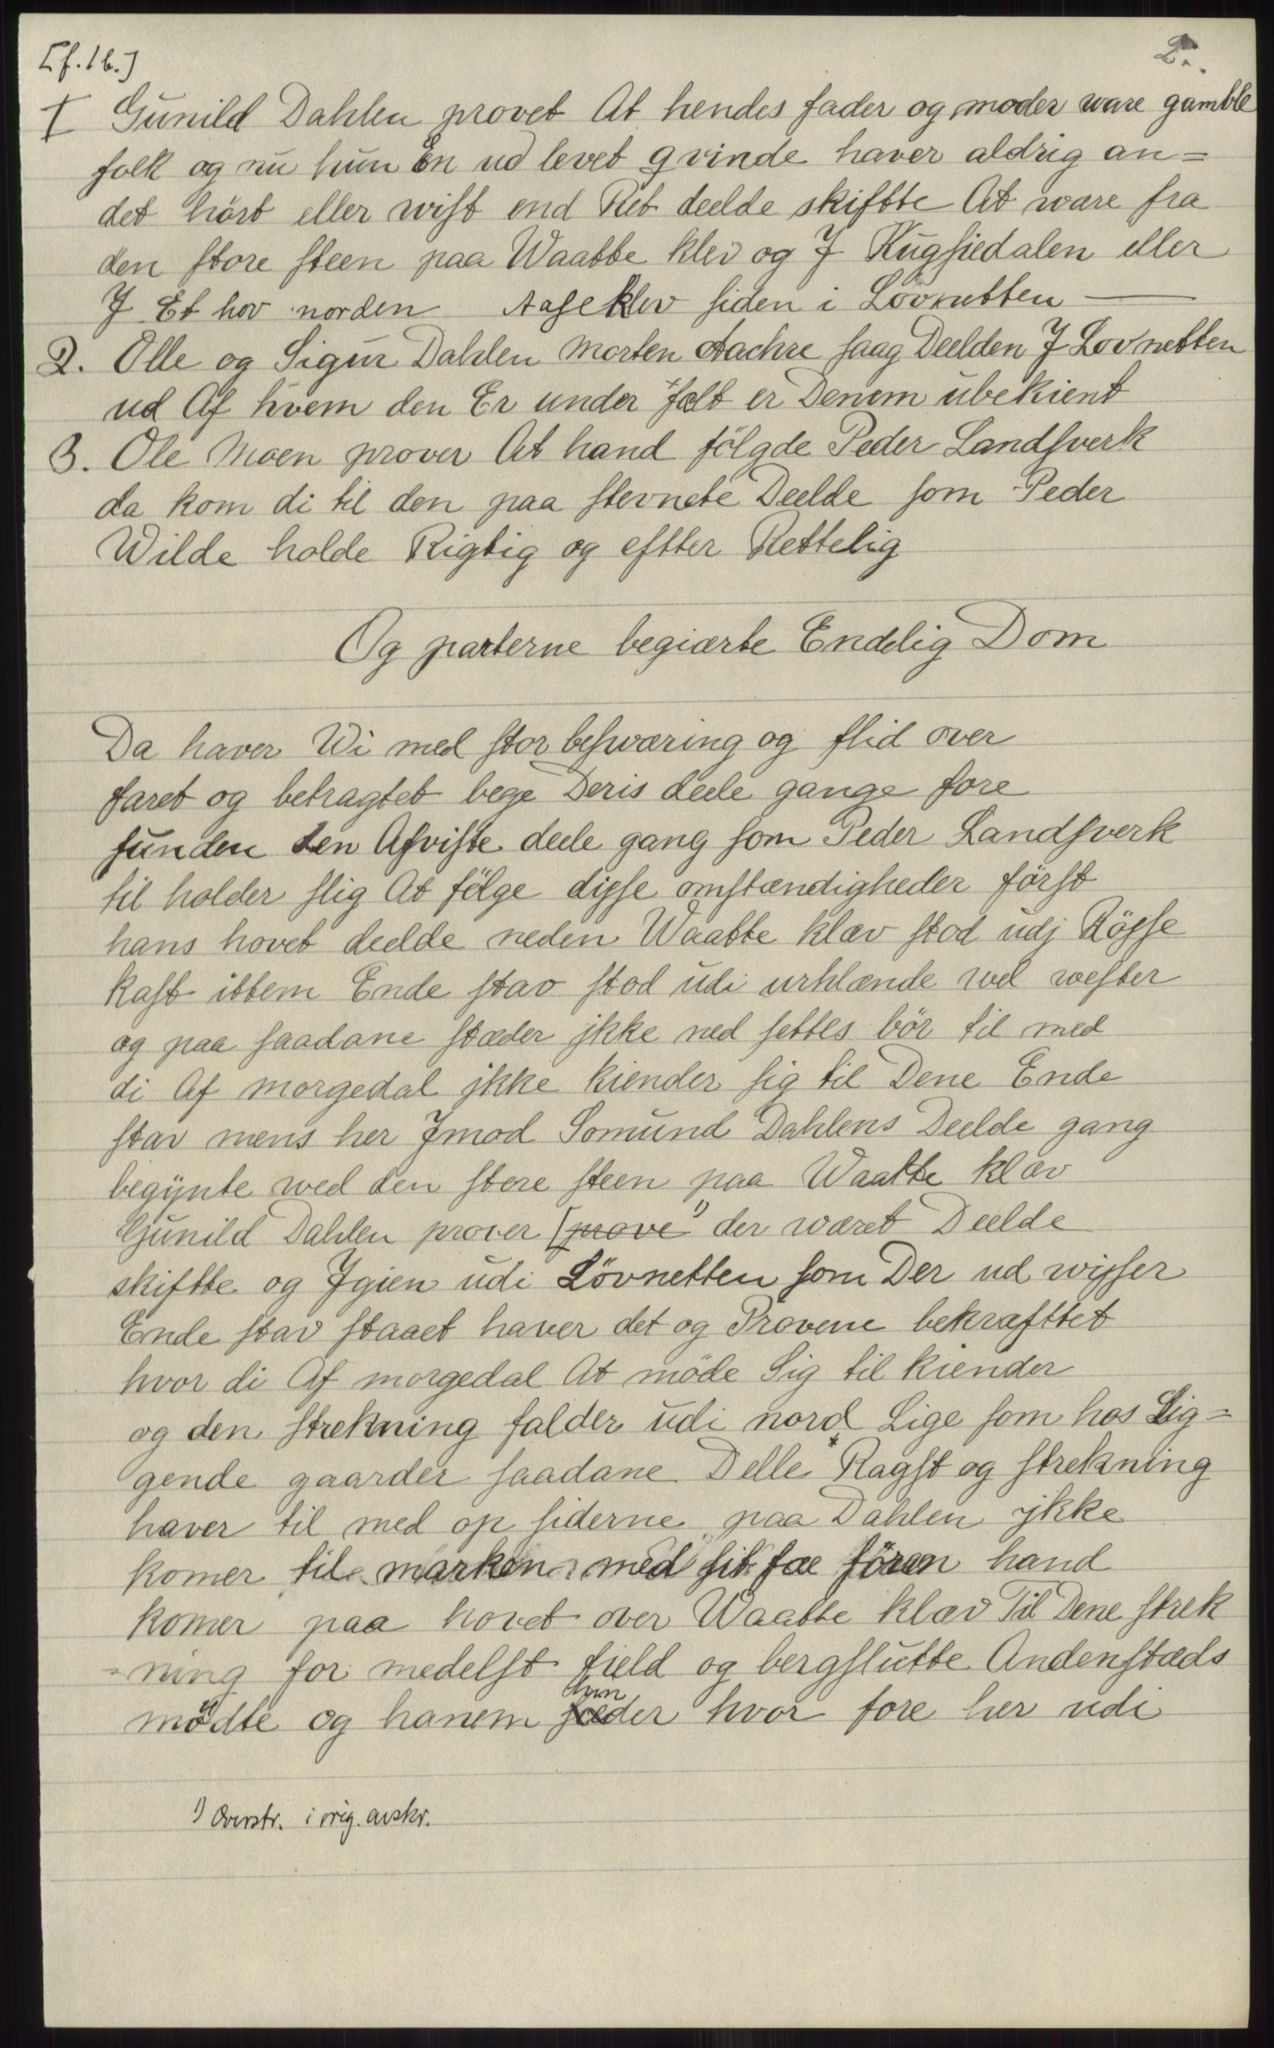 [f. 1b.]
2.
I Gunild Dahlen provet At hendes fader og moder ware gamble
folk og nu hun En ud levet qvinde haver aldrig an=
det hört eller wist end Ret deelde skiftte At ware fra
den store steen paa Waatte klev og J Kugsiedalen eller
J Et hov norden Aaseklev siden i Lövnetten —
2. Olle og Sigur Dahlen Morten Aachre saag Deelden J Lovnetten
ud Af hvem den Er under fælt er Denem ubekient
3. Ole Moen prover At hand fölgde Peder Landsverk
da kom di til den paa stevnete Deelde som Peder
Wilde holde Rigtig og eftter Rettelig
Og parterne begiærte Endelig Dom
Da haver Wi med stor besværing og flid over
faret og betragtet bege Deris deele gange fore
funden den Afviste deele gang som Peder Landsverk
til holder slig At fölge disse omstændigheder först
hans hovet deelde neden Waatte klæv stod udj Rösse
kast ittem Ende stav stod udi urhlænde vel wester
og paa saadane stæder jkke ned settes bör til med
di Af morgedal jkke kiender sig til Dene Ende
stav mens her Jmod Somund Dahlens Deelde gang
begynte wed den store steen paa Waatte klæv
Gunild Dahlen prover [prove 1) der wæret Deelde
skiftte og Jgien udi Lövnetten som Der ud wisser
Ende stav staaet haver det og Provene bekræfttet
hvor di Af morgedal At möde Sig til kiender
og den strekning falder udi nord Lige som hos Lig=
gende gaarder saadane Delle * Ragst og strekning
haver til med op siderne paa Dahlen jkke
komer til marken med sit fæ fören hand
komer paa hovet over Waatte klæv Til Dene strek
=ning for medelst field og bergflutte Andenstæds
mödte og hanem hinder hvor fore her udi
1) Overstr. i orig. avskr.